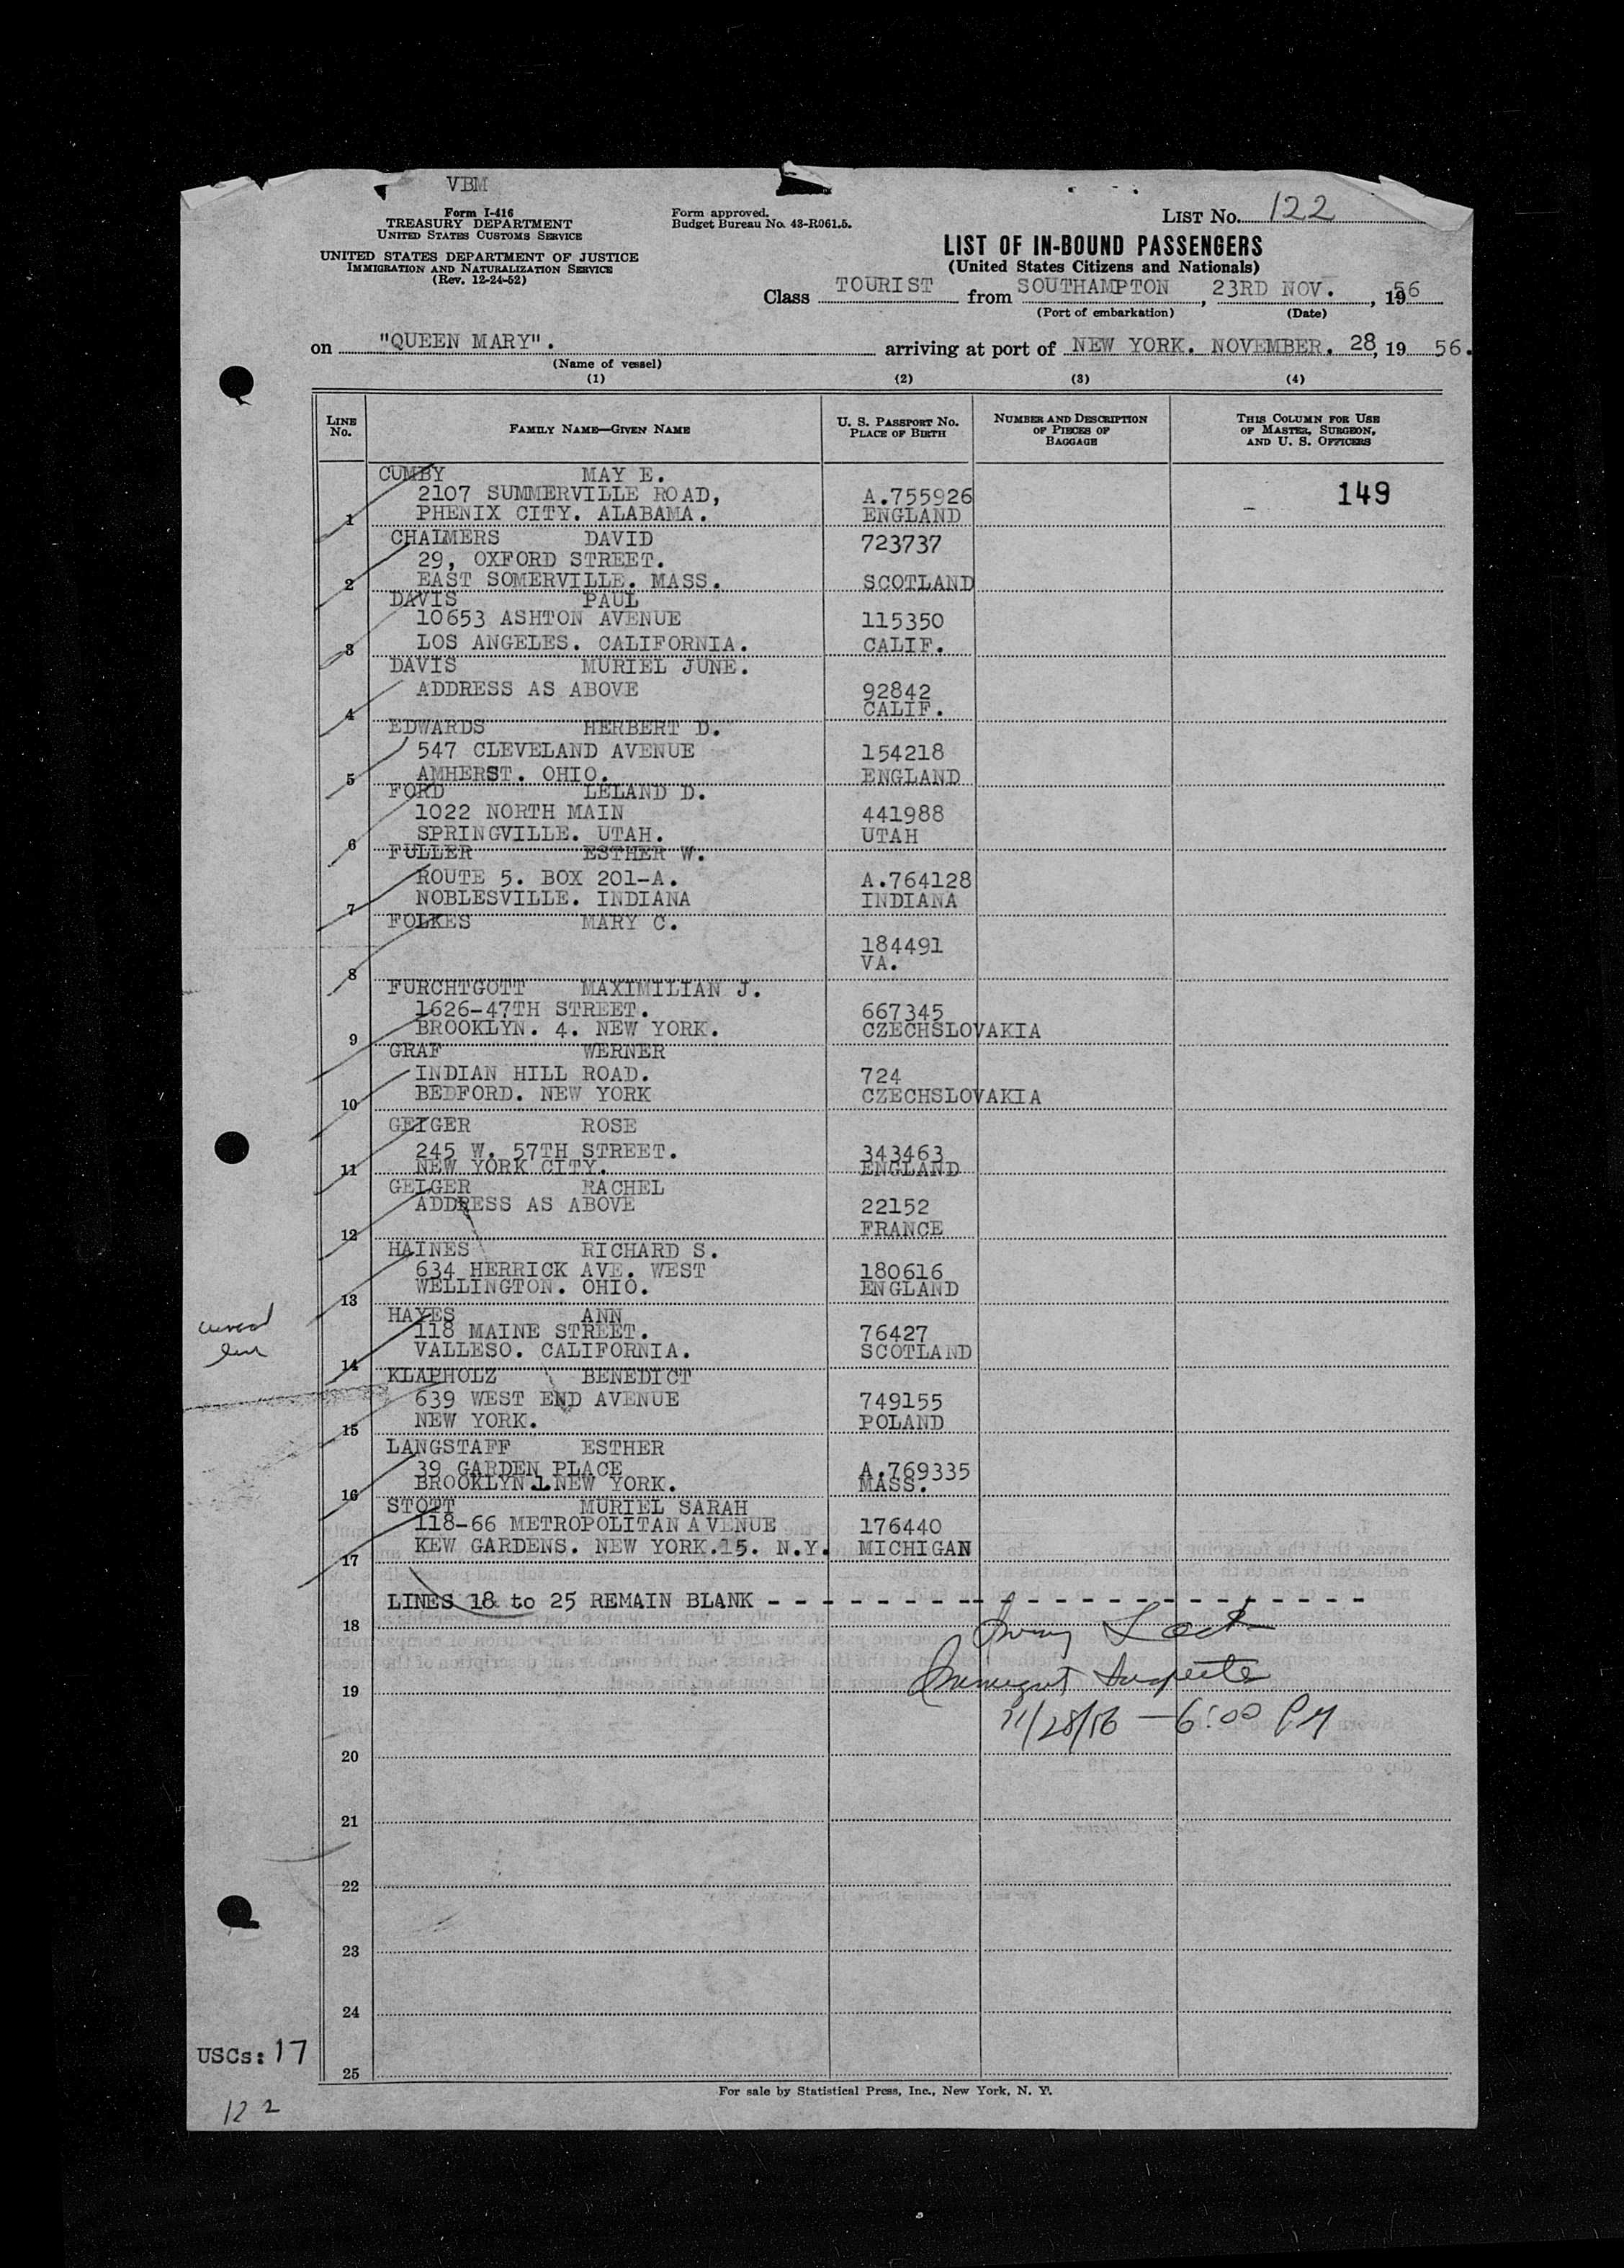 VBM
Form I-416
TREASURY DEPARTMENT
UNITED STATES CUSTOMS SERVICE
UNITED STATES DEPARTMENT OF JUSTICE
IMMIGRATION AND NATURALIZATION SERVICE
(Rev. 12-24-52)
Form approved.
Budget Bureau No. 43-R061.5.
LIST No. 122
LIST OF IN-BOUND PASSENGERS
(United States Citizens and Nationals)
Class TOURIST from SOUTHAMPTON, 23RD NOV., 1956
(Port of embarkation) (Date)
on "QUEEN MARY". arriving at port of NEW YORK. NOVEMBER. 28, 19 56.
(Name of vessel)
(1) (2) (3) (4)
LINE No. FAMILY NAME—GIVEN NAME U. S. PASSPORT NO. PLACE OF BIRTH NUMBER AND DESCRIPTION OF PIECES OF BAGGAGE THIS COLUMN FOR USE OF MASTER, SURGEON, AND U. S. OFFICERS
CUMBY MAY E.
2107 SUMMERVILLE ROAD, A.755926 149
1 PHENIX CITY. ALABAMA. ENGLAND
CHALMERS DAVID 723737
29, OXFORD STREET.
2 EAST SOMERVILLE. MASS. SCOTLAND
DAVIS PAUL
10653 ASHTON AVENUE 115350
3 LOS ANGELES. CALIFORNIA. CALIF.
DAVIS MURIEL JUNE.
ADDRESS AS ABOVE 92842
4 CALIF.
EDWARDS HERBERT D.
547 CLEVELAND AVENUE 154218
5 AMHERST. OHIO. ENGLAND
FORD LELAND D.
1022 NORTH MAIN 441988
6 SPRINGVILLE. UTAH. UTAH
FULLER ESTHER W.
ROUTE 5. BOX 201-A. A.764128
7 NOBLESVILLE. INDIANA INDIANA
FOLKES MARY C.
184491
8 VA.
FURCHTGOTT MAXIMILIAN J.
1626-47TH STREET. 667345
9 BROOKLYN. 4. NEW YORK. CZECHSLOVAKIA
GRAF WERNER
INDIAN HILL ROAD. 724
10 BEDFORD. NEW YORK CZECHSLOVAKIA
GEIGER ROSE
245 W. 57TH STREET. 343463
11 NEW YORK CITY. ENGLAND
GEIGER RACHEL
ADDRESS AS ABOVE 22152
12 FRANCE
HAINES RICHARD S.
634 HERRICK AVE. WEST 180616
13 WELLINGTON. OHIO. ENGLAND
HAYES ANN
118 MAINE STREET. 76427
14 VALLESO. CALIFORNIA. SCOTLAND
KLAPHOLZ BENEDICT
639 WEST END AVENUE 749155
15 NEW YORK. POLAND
LANGSTAFF ESTHER
39 GARDEN PLACE A.769335
16 BROOKLYN.1.NEW YORK. MASS.
STOTT MURIEL SARAH
118-66 METROPOLITAN AVENUE 176440
17 KEW GARDENS. NEW YORK.15. N.Y. MICHIGAN
LINES 18 to 25 REMAIN BLANK - - - - - - - - - - - - - - - - - - - - -
18
19
11/28/56 — 6:00 PM
20
21
22
23
24
USCs: 17
25
For sale by Statistical Press, Inc., New York, N. Y.
122